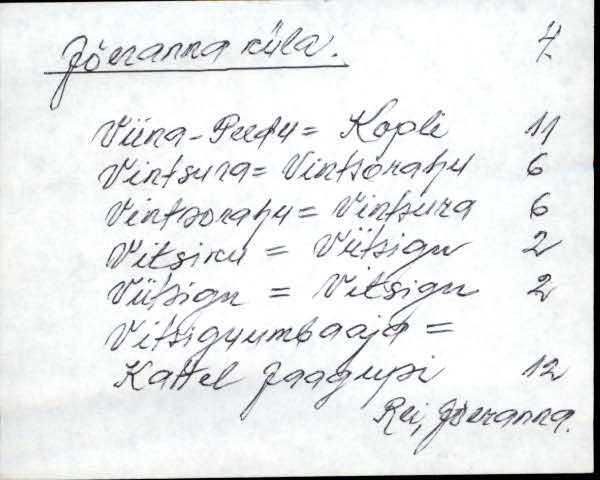 Jõeranna küla. 7.
Viina-Peedu = Kopli 11
Vintsura = Vintsorahu 6
Vintsorahu = Vintsura 6
Vitsiku = Viitsigu 2
Viitsigu = Vitsigu 2
Vitsiguumbaaja =
Kattel Jaagupi 12
Rei, Jõeranna.